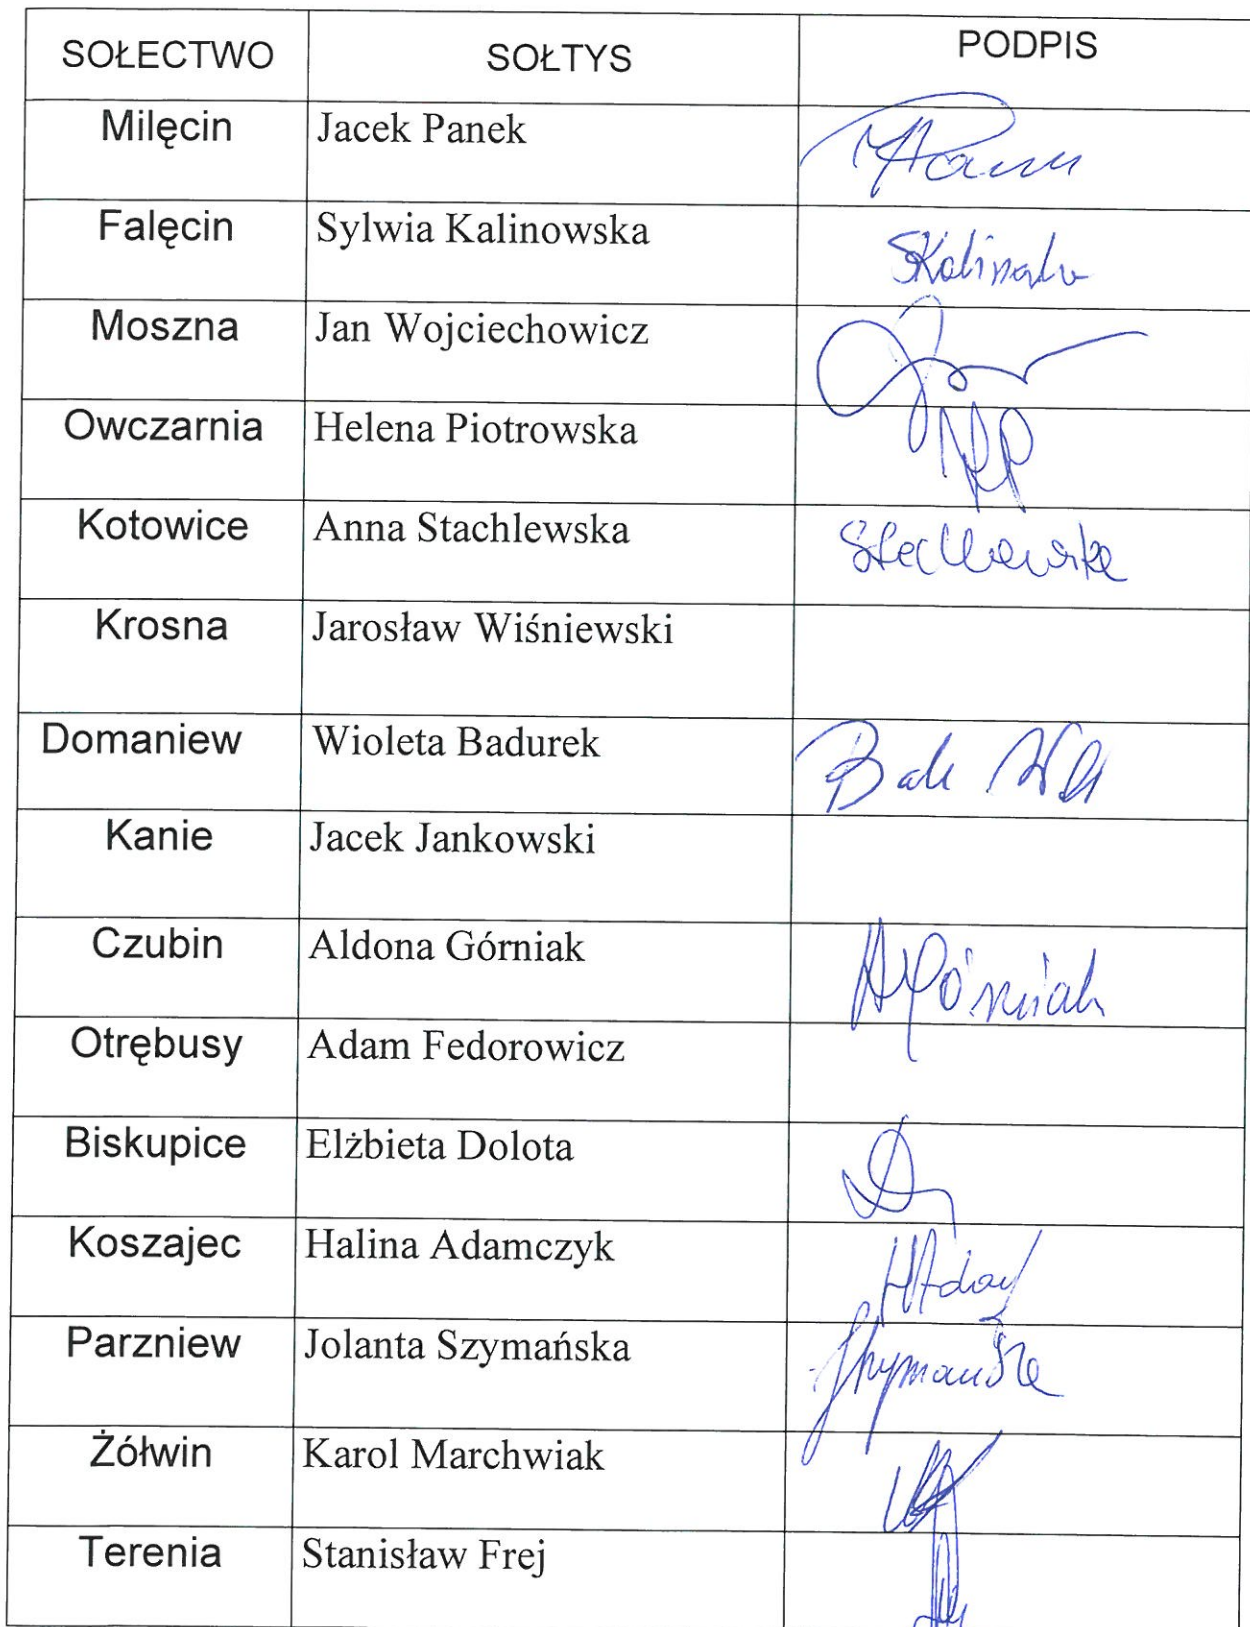 SOŁECTWO SOŁTYS PODPIS
Milęcin Jacek Panek
Falęcin Sylwia Kalinowska SKalinowska
Moszna Jan Wojciechowicz
Owczarnia Helena Piotrowska
Kotowice Anna Stachlewska Stachlewska
Krosna Jarosław Wiśniewski
Domaniew Wioleta Badurek
Kanie Jacek Jankowski
Czubin Aldona Górniak AGórniak
Otrębusy Adam Fedorowicz
Biskupice Elżbieta Dolota
Koszajec Halina Adamczyk
Parzniew Jolanta Szymańska Szymańska
Żółwin Karol Marchwiak
Terenia Stanisław Frej